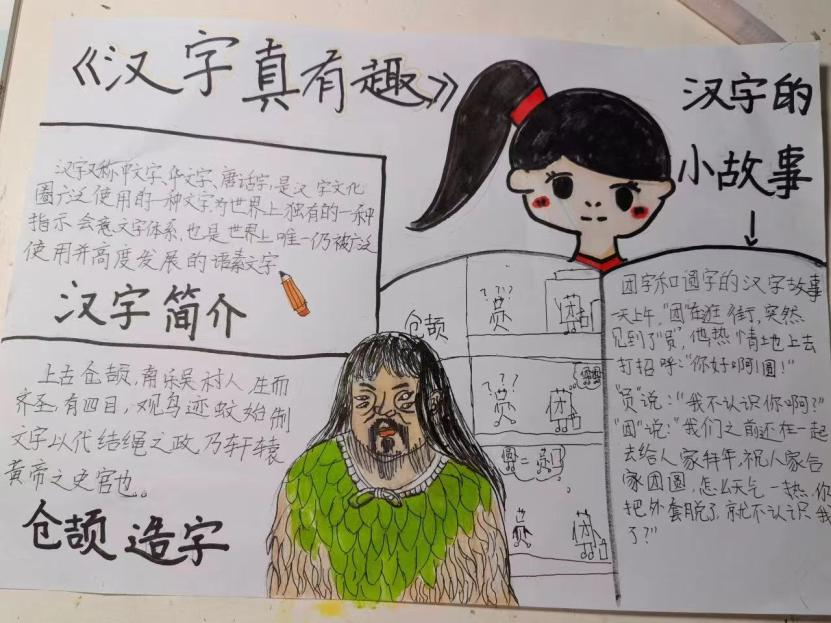 《汉字真有趣》
汉字又称中文字、华文字、唐话字,是汉字文化
圈广泛使用的一种文字,为世界上独有的一种
指示会意文字体系,也是世界上唯一仍被广泛
使用并高度发展的语素文字
汉字简介
上古仓颉,南乐吴村人,生而
齐圣,有四目,观鸟迹蚊始制
文字以代结绳之政,乃轩辕
黄帝之史官也。
仓颉造字
仓颉
???
员
???
员
圆=员口
汉字的
小故事
团字和圆字的汉字故事
一天上午,"团"在逛街,突然
见到了"员",他热情地上去
打招呼:"你好啊!圆!"
"员"说:"我不认识你啊?"
"团"说:"我们之前还在一起
去给人家拜年,祝人家合
家团圆,怎么天气一热,你
把外套脱了,就不认识我
了?"